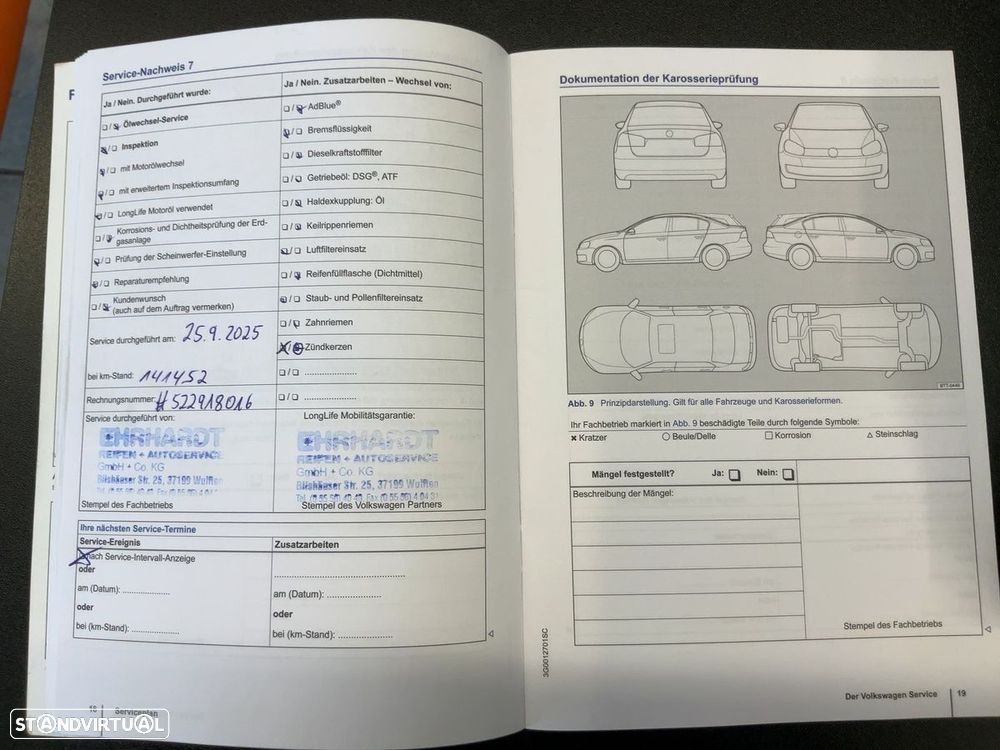 Service-Nachweis 7
Ja / Nein. Durchgeführt wurde:
☐ / ☐ Ölwechsel-Service
☐ / ☐ Inspektion
☐ / ☐ mit Motorölwechsel
☐ / ☐ mit erweitertem Inspektionsumfang
☐ / ☐ LongLife Motoröl verwendet
☐ / ☐ Korrosions- und Dichtheitsprüfung der Erd-
gasanlage
☐ / ☐ Prüfung der Scheinwerfer-Einstellung
☐ / ☐ Reparaturempfehlung
☐ / ☐ Kundenwunsch
(auch auf dem Auftrag vermerken)
Service durchgeführt am: 25.9.2025
bei km-Stand: 141452
Rechnungsnummer: #522918016
Service durchgeführt von:
EHRHARDT
REIFEN + AUTOSERVICE
GmbH + Co. KG
Bilshäuser Str. 25, 37199 Wulften
Stempel des Fachbetriebs
Ja / Nein. Zusatzarbeiten – Wechsel von:
☐ / ☐ AdBlue®
☐ / ☐ Bremsflüssigkeit
☐ / ☐ Dieselkraftstofffilter
☐ / ☐ Getriebeöl: DSG®, ATF
☐ / ☐ Haldexkupplung: Öl
☐ / ☐ Keilrippenriemen
☐ / ☐ Luftfiltereinsatz
☐ / ☐ Reifenfüllflasche (Dichtmittel)
☐ / ☐ Staub- und Pollenfiltereinsatz
☐ / ☐ Zahnriemen
☐ / ☐ Zündkerzen
☐ / ☐ ....................
☐ / ☐ ....................
LongLife Mobilitätsgarantie:
EHRHARDT
REIFEN + AUTOSERVICE
GmbH + Co. KG
Bilshäuser Str. 25, 37199 Wulften
Stempel des Volkswagen Partners
Ihre nächsten Service-Termine
Service-Ereignis
nach Service-Intervall-Anzeige
oder
am (Datum): ..................
oder
bei (km-Stand): ..................
Zusatzarbeiten
..................................................
am (Datum): ....................
oder
bei (km-Stand): ....................
18 Serviceplan
Dokumentation der Karosserieprüfung
BTT-0446
Abb. 9 Prinzipdarstellung. Gilt für alle Fahrzeuge und Karosserieformen.
Ihr Fachbetrieb markiert in Abb. 9 beschädigte Teile durch folgende Symbole:
✖ Kratzer ○ Beule/Delle □ Korrosion △ Steinschlag
Mängel festgestellt? Ja: ☐ Nein: ☐
Beschreibung der Mängel:
Stempel des Fachbetriebs
3G0012701SC
Der Volkswagen Service 19
STANDVIRTUAL